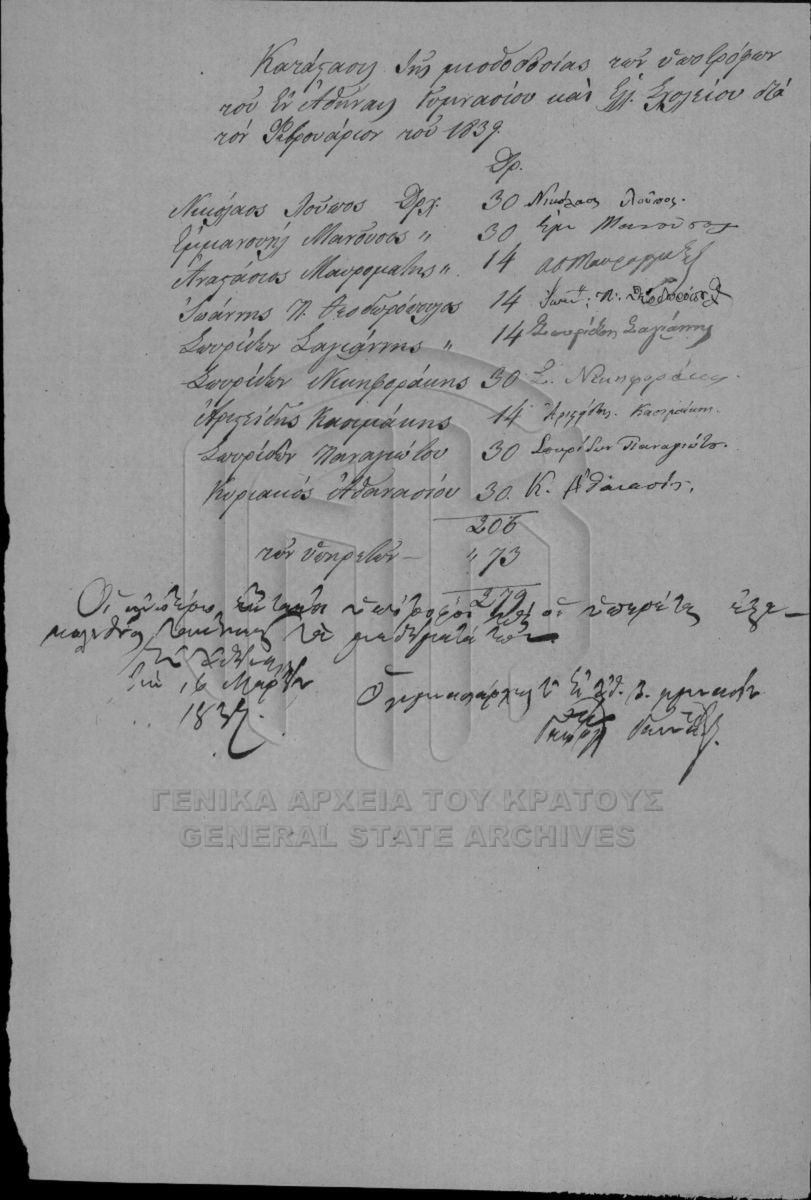 Κατάστασις τῆς μισθοδοσίας τῶν ὑποτρόφων
τοῦ ἐν Ἀθήναις Γυμνασίου καὶ Ἑλ. Σχολείου διὰ
τὸν Φεβρουάριον τοῦ 1839.
Δρ.
Νικόλαος Λοῦπος Δρχ. 30 Νικόλαος Λοῦπος.
Ἐμμανουὴλ Μανοῦσος " 30 Ἐμ Μανοῦσος
Ἀναστάσιος Μαυρομάτης ". 14
Ἰωάννης Π. Θεοδωρόπουλος 14 Π. Θεοδωρόπ
Σπυρίδων Σαγιάννης " 14 Σπυρίδων Σαγιάννης
Σπυρίδων Νικηφοράκης 30 Σ. Νικηφοράκης.
Ἀριστείδης Κασιμάκης 14 Ἀριστείδης Κασιμάκης.
Σπυρίδων Παναγιώτου 30 Σπυρίδων Παναγιώτου.
Κυριακὸς Ἀθανασίου 30. Κ. Ἀθανασίου.
206
τῶν ὑπηρετῶν — " 73
279
Οἱ ἀνωτέρω ὑπότροφοι καὶ οἱ ὑπηρέται
τὰ μαθήματά των
Ἐν Ἀθήναις
τῇ 16 Μαρτίου
1839.
Ὁ γυμνασιάρχης τοῦ ἐν Ἀθ. Γυμνασίου
Γεώργ Γεννάδ
ΓΕΝΙΚΑ ΑΡΧΕΙΑ ΤΟΥ ΚΡΑΤΟΥΣ
GENERAL STATE ARCHIVES